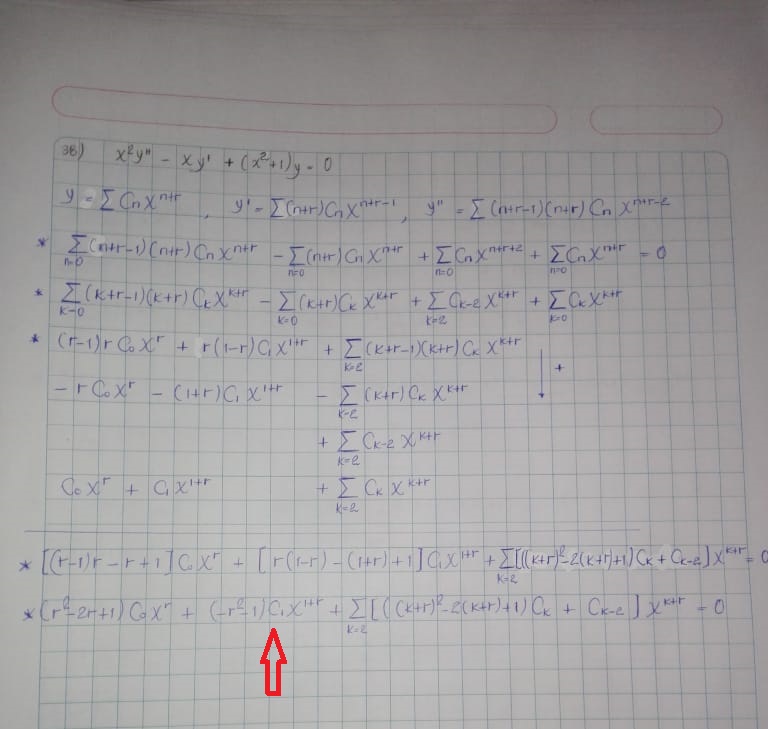 38) x²y'' - xy' + (x²+1)y = 0
y = ΣCnX^(n+r) , y' = Σ(n+r)CnX^(n+r-1) , y'' = Σ(n+r-1)(n+r)CnX^(n+r-2)
* Σ_(n=0)(n+r-1)(n+r)CnX^(n+r) - Σ_(n=0)(n+r)CnX^(n+r) + Σ_(n=0)CnX^(n+r+2) + Σ_(n=0)CnX^(n+r) = 0
* Σ_(k=0)(k+r-1)(k+r)CkX^(k+r) - Σ_(k=0)(k+r)CkX^(k+r) + Σ_(k=2)Ck-2X^(k+r) + Σ_(k=0)CkX^(k+r)
* (r-1)rC₀X^r + r(1-r)C₁X^(1+r) + Σ_(k=2)(k+r-1)(k+r)CkX^(k+r) +
- rC₀X^r - (1+r)C₁X^(1+r) - Σ_(k=2)(k+r)CkX^(k+r)
+ Σ_(k=2)Ck-2X^(k+r)
C₀X^r + C₁X^(1+r) + Σ_(k=2)CkX^(k+r)
* [(r-1)r - r + 1]C₀X^r + [r(1-r) - (1+r) + 1]C₁X^(1+r) + Σ_(k=2)[((k+r)² - 2(k+r)+1)Ck + Ck-2]X^(k+r) = 0
* (r² - 2r + 1)C₀X^r + (-r² - 1)C₁X^(1+r) + Σ_(k=2)[((k+r)² - 2(k+r)+1)Ck + Ck-2]X^(k+r) = 0